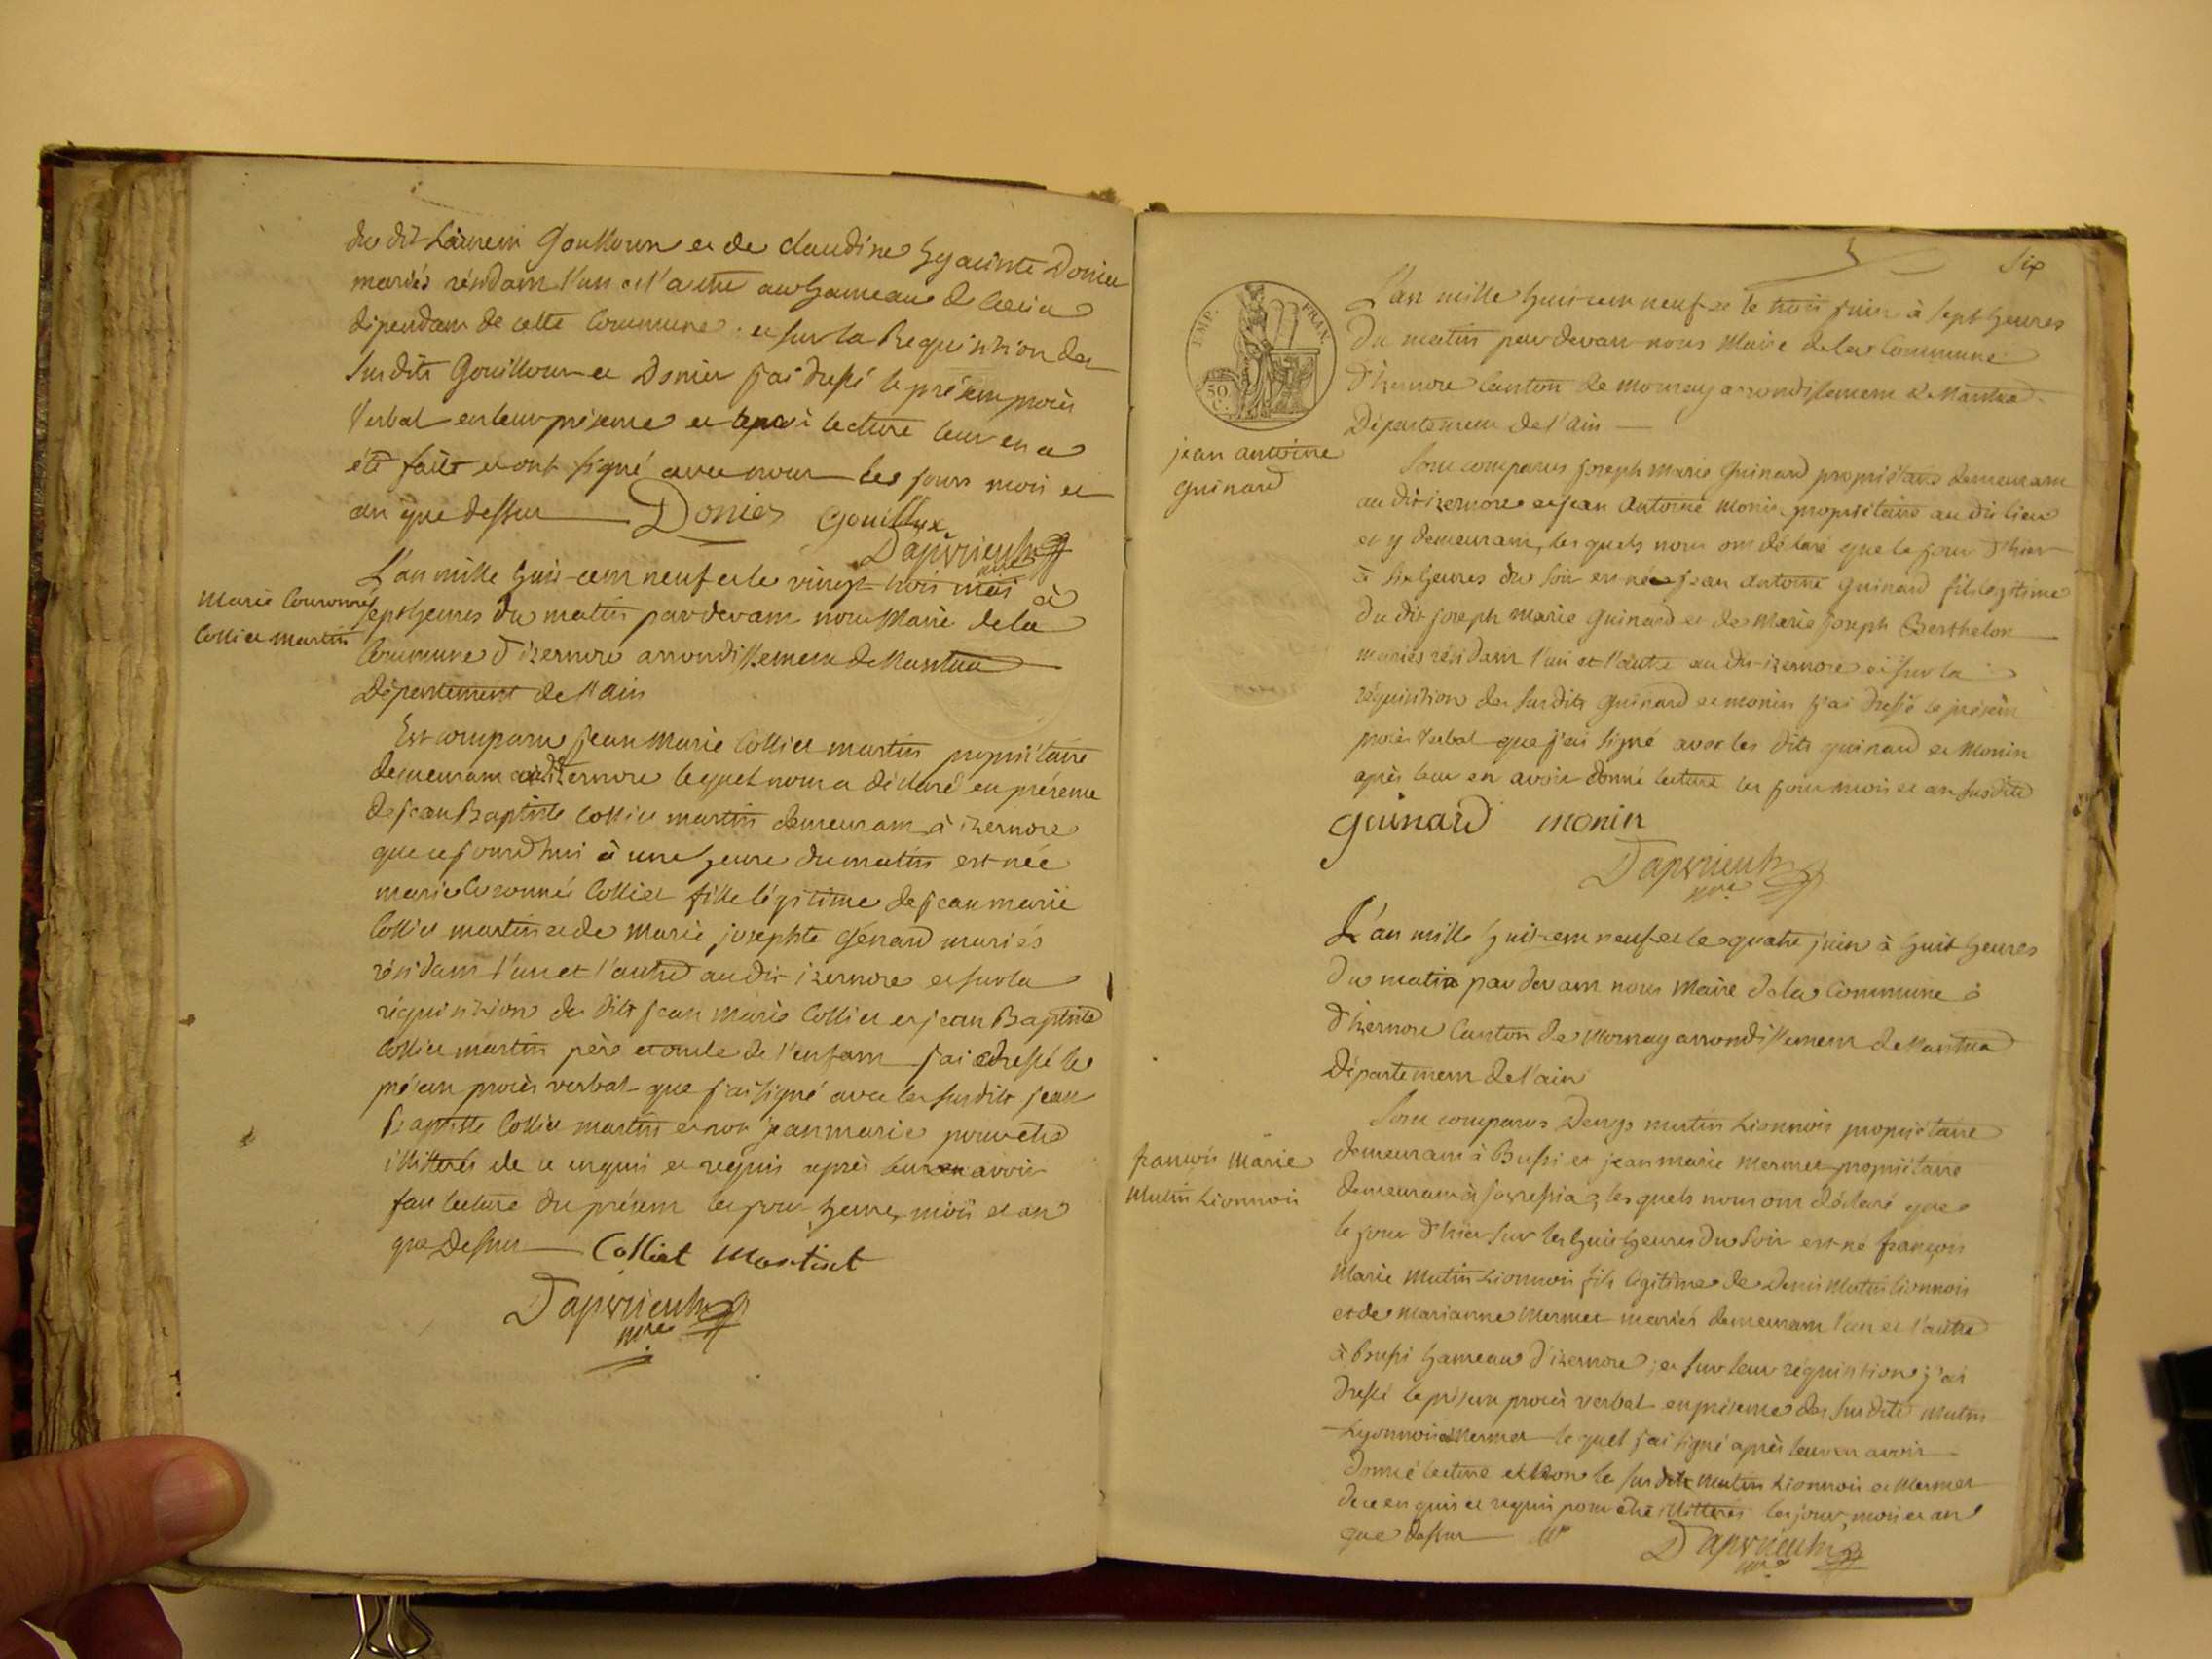 du dit Laurent Goulloux et de claudine hyacinte Donier
mariés résidant l'un et l'autre au hameau de
dépendant de cette Commune. et sur la Requisition des
susdits Gouilloux et Donier j'ai dressé le présent procès
Verbal en leur présence et après lecture leur en a
été faite et ont signé avec nous les jours mois et
an que dessus Donier Gouilloux
mre
Marie Couronnée
Colliet martin
L'an mille huit cent neuf et le vingt trois mai à
sept heures du matin pardevant nous Maire de la
Commune d'izernore arrondissement de Nantua
Département de l'ain
Est comparu jean Marie Colliet martin propriétaire
demeurant audit izernore lequel nous a déclaré en présence
de jean Baptiste Colliet martin demeurant à izernore
que cejourdhui à une heure du matin est née
marie Couronnée Colliet fille légitime de jean marie
Colliet martin et de Marie josephte Génard mariés
résidant l'un et l'autre au dit izernore et sur la
réquisition des dits jean Marie Colliet et jean Baptiste
Colliet martin père et oncle de l'enfant j'ai dressé le
présent procès verbal que j'ai signé avec les susdits jean
Baptiste Colliet martin et non jean marie pour être
illitteré de ce enquis et requis après leur en avoir
fait lecture du présent les jour, heure, mois et an
que Dessus Colliet Martinet
mre
Six
EMP. FRAN.
50 C.
jean antoine
guinard
L'an mille huit cent neuf et le trois juin à sept heures
du matin pardevant nous Maire de la Commune
d'izernore Canton de Mornay arrondissement de Nantua
Département de l'Ain
Sont comparus joseph marie Guinard propriétaire demeurant
au dit izernore et jean Antoine Monin propriétaire au dit lieu
et y demeurant, lesquels nous ont déclaré que le jour d'hier
à six heures du soir est né jean antoine guinard fils légitime
du dit joseph Marie Guinard et de Marie joseph Berthelon
mariés résidant l'un et l'autre au dit izernore et sur la
réquisition des susdits guinard et monin j'ai dressé le présent
procès Verbal que j'ai signé avec les dits guinard et Monin
après leur en avoir donné lecture les jour mois et an susdits
Guinard monin
mre
L'an mille huit cent neuf et le quatre juin à huit heures
du matin pardevant nous Maire de la Commune
d'izernore Canton de Mornay arrondissement de Nantua
Département de l'ain
françois Marie
Mutin Lionnois
Sont comparus Denys mutin Lionnois propriétaire
demeurant à Bussi et jean marie Mermet propriétaire
demeurant à, lesquels nous ont déclaré que
le jour d'hier sur les huit heures du soir est né françois
Marie Mutin Lionnois fils légitime de Denis Mutin lionnois
et de Marianne Mermet mariés demeurant l'un et l'autre
à Bussi hameau d'izernore; et sur leur réquisition j'ai
dressé le présent procès verbal en présence des susdits Mutin
Lyonnois et Mermet lequel j'ai signé après leur en avoir
donné lecture et non les susdits Mutin Lionnois et Mermet
de ce enquis et requis pour être illitterés les jour, mois et an
que dessus
mre